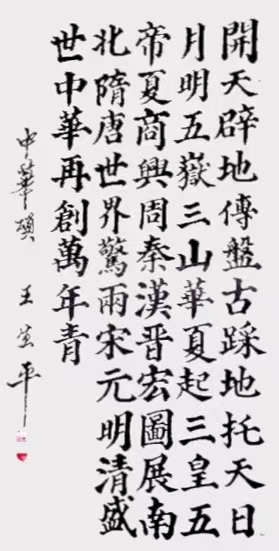 開天辟地傳盤古踩地托天日
月明五嶽三山華夏起三皇五
帝夏商興周秦漢晋宏圖展南
北隋唐世界驚兩宋元明清盛
世中華再創萬年青
中華頌 王 平